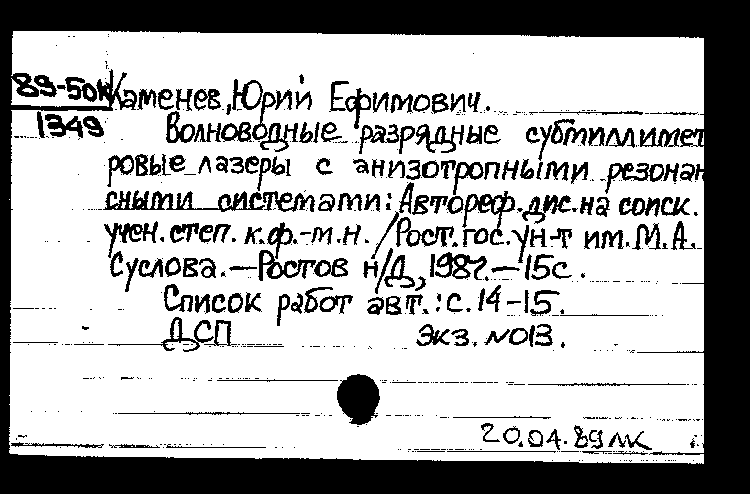 89-50к Каменев, Юрий Ефимович.
1349 Волноводные разрядные субмиллимет
ровые лазеры с анизотропными резонан
сными системами: Автореф. дис. на соиск.
учен. степ. к.ф.-м.н. / Рост. гос. ун-т им. М.А.
Суслова. — Ростов н/Д, 1987. — 15с.
Список работ авт.: с. 14-15.
ДСП экз. №013.
20.04.89